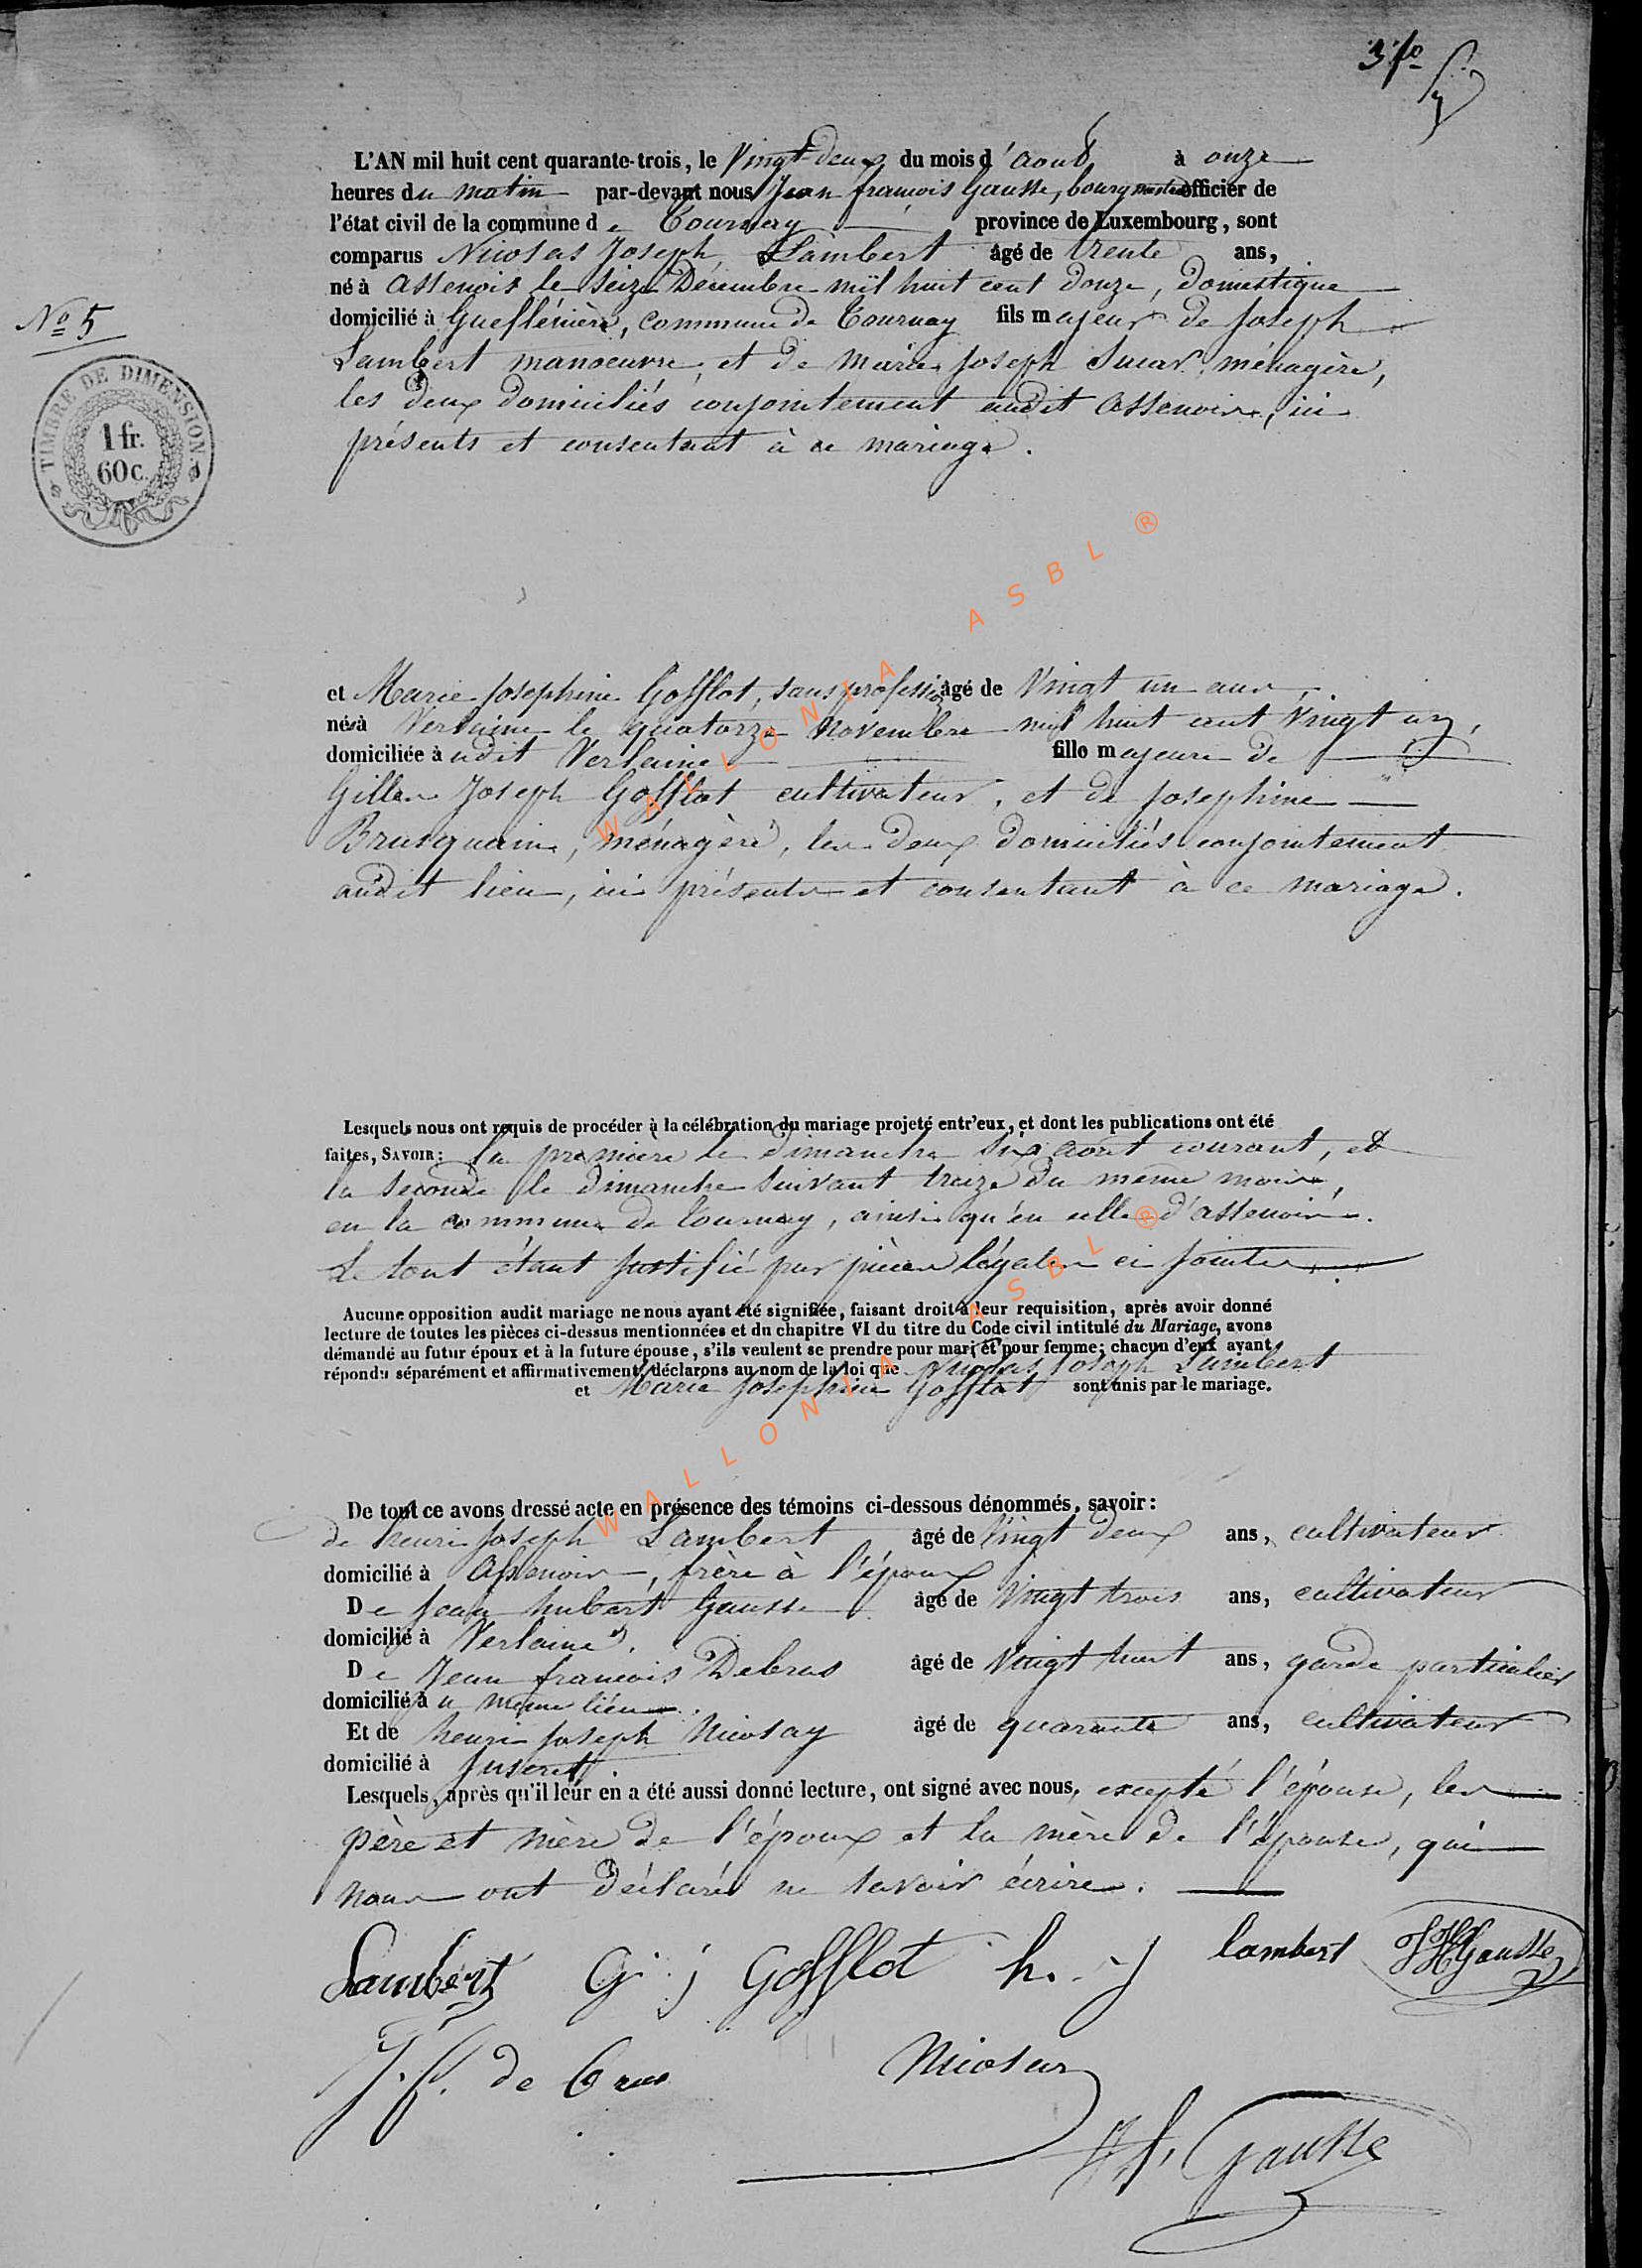 3 fo
L'AN mil huit cent quarante-trois, le Vingt-deux du mois d'aout à onze
heures du matin par-devant nous Jean françois Gausse, bourgmestre officier de
l'état civil de la commune de Tournay province de Luxembourg, sont
comparus Nicolas Joseph Lambert âgé de trente ans,
né à Assenois le seize Décembre mil huit cent douze, domestique
No 5
domicilié à commune de Tournay fils majeur de Joseph
Lambert manoeuvre, et de marie Joseph ménagère,
les deux domiciliés conjointement audit Assenois, ici
présents et consentant à ce mariage.
TIMBRE DE DIMENSION
1 fr.
60 c.
et Marie Josephine Gofflot, sans professi âgé de Vingt un ans,
née à Verlaine le quatorze novembre mil huit cent vingt un,
domiciliée audit Verlaine fille majeure de
Gilles Joseph Gofflot cultivateur, et de Josephine
Brusquin, ménagère, les deux domiciliés conjointement
audit lieu, ici présents et consentant à ce mariage.
WALLONIA ASBL ®
Lesquels nous ont requis de procéder à la célébration du mariage projeté entr'eux, et dont les publications ont été
faites, SAVOIR: la première le dimanche six août courant, et
la seconde le dimanche suivant treize du même mois,
en la commune de Tournay, ainsi qu'en celle d'assenois.
Le tout étant justifié par pièces légales ci jointes
Aucune opposition audit mariage ne nous ayant été signifiée, faisant droit à leur requisition, après avoir donné
lecture de toutes les pièces ci-dessus mentionnées et du chapitre VI du titre du Code civil intitulé du Mariage, avons
démandé au futur époux et à la future épouse, s'ils veulent se prendre pour mari et pour femme; chacun d'eux ayant
répondu séparément et affirmativement, déclarons au nom de la loi que Nicolas Joseph Lambert
et Marie Josephine Gofflot sont unis par le mariage.
WALLONIA ASBL ®
De tout ce avons dressé acte en présence des témoins ci-dessous dénommés, savoir:
de henri Joseph Lambert âgé de Vingt deux ans, cultivateur
domicilié à Assenois, frère à l'époux
De Jean hubert Gausse âgé de Vingt trois ans, cultivateur
domicilié à Verlaine,
De Jean francois Debras âgé de Vingt huit ans, garde particulier
domicilié au même lieu.
Et de henri Joseph Nicolay âgé de quarante ans, cultivateur
domicilié à Juseret.
Lesquels, après qu'il leur en a été aussi donné lecture, ont signé avec nous, excepté l'épouse, les
père et mère de l'époux et la mère de l'épouse, qui
nous ont déclaré ne savoir écrire.
Lambert G. j Gofflot h. j lambert JHGausse
J. f. de bras Nicolas
J. f. Gausse